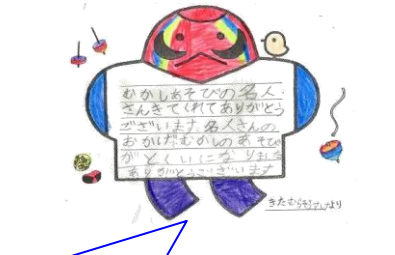 むかしあそびの名人
さんきてくれてありがとう
ございます。名人さんの
おかげでむかしのあそび
がとくいになりました
ありがとうございます
きたむら より